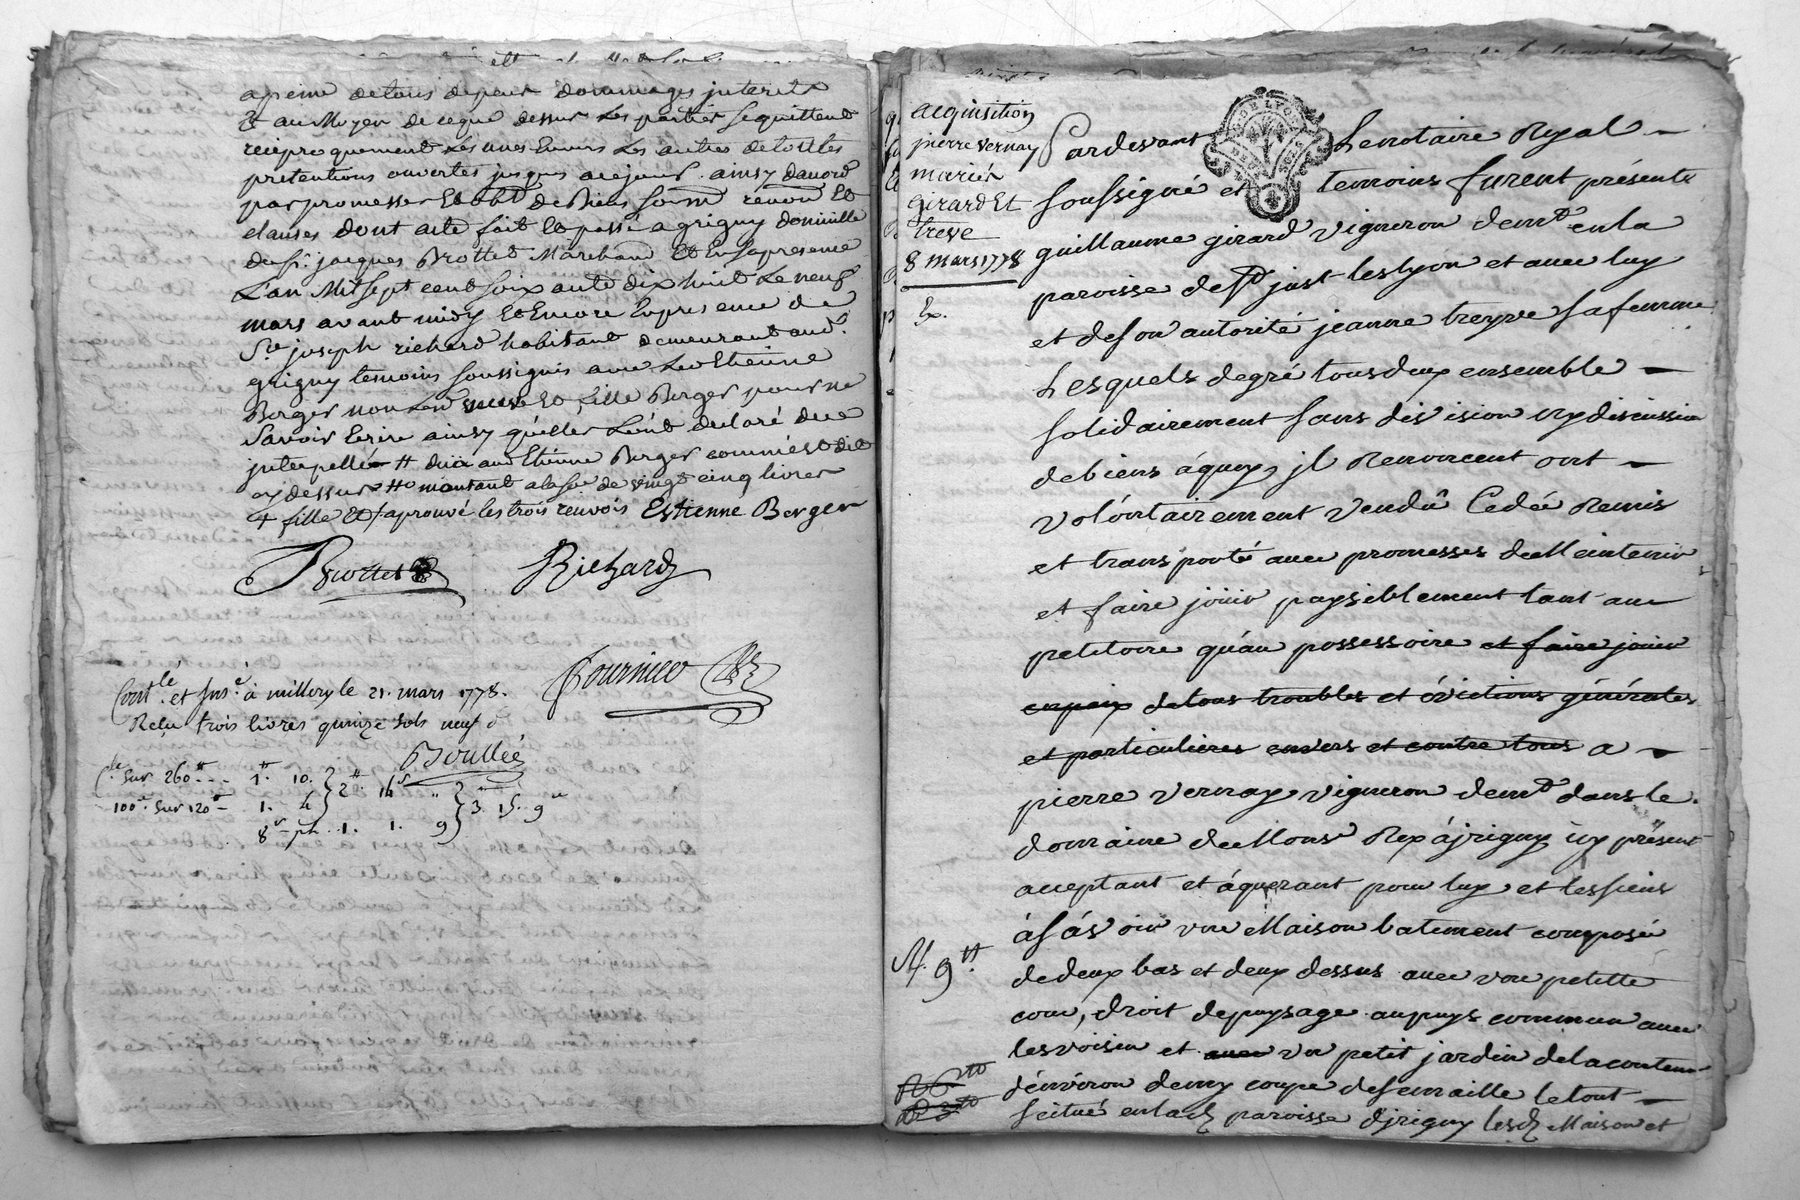 a peine de tous depens dommages jnterets
& au Moyen de ceque dessus Les parties se quittent
reciproquement Les unes Envers Les autres de toutes
pretentions ouvertes jusques acejour. ainsy daccord
par promesse Et obl. de Biens soum. renon. Et
clauses dont acte fait Et passé a grigny domicille
du sr. jacques Brottet Marchand Et En sa presence
L'an Mil sept cent soixante dix huit Le neuf
mars avant midy Et Encore En presence de
Sr. joseph richard habitant demeurant aud.
grigny temoins soussignés avec Led Etienne
Berger non Lad veuve Et fille Berger pour ne
savoir Ecrire ainsy qu'elles L'ont declaré de ce
jnterpellée # audt Etienne Berger comme est dit
cy dessus # montant a la so. de vingt cinq livres
+ fille Et / aprouvé les trois renvois Estienne Berger
Brottet Richard
Fournier
Contlé. et Insé. à millery le 21. mars 1778.
Reçu trois livres quinze sols neuf d
Boullée
Sur 260 # 1. # 10. } 2 # 14 s
100e. Sur 120 # 1. 4 } 3. 15. 9
8 s. ph. 1. 1. 9
acquisition
pierre vernay
mariés
girard Et
treve
8 mars 1778
Ex.
Pardevant Le notaire Royal
soussigné et temoins furent présents
guillaume girard vigneron demt en la
paroisse de st just les lyon et avec luy
et de son autorité jeanne treyve sa femme
Lesquels de gré tous deux ensemble
solidairement sans division ny discussion
de biens áquoy jl Renoncent ont
volontairement vendû Cedée Remis
et transporté avec promesses de Maintenir
et faire joüir paysiblement tant au
petitoire qu'au possessoire et faire jouir
en paix de tous troubles et évictions générales
et particulieres envers et contre tous a
pierre vernay vigneron demt dans le
domaine de Monsr Rey à jrigny icy présent
acceptant et áquerant pour luy et les siens
à sávoir une Maison batiment composée
de deux bas et deux dessus avec une petitte
cour, droit de puysage au puys commun avec
les voisin et avec un petit jardin de la conten.
d'environ demy coupe de semaille le tout
scitué en lad paroisse d'jrigny lesd Maison et
M. 9 #.